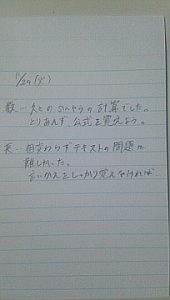 1/29(火)
数…犬との なんやらの計算でした。
とりあえず、公式を覚えよう。
英…相変わらずテキストの問題が
難しかった。
言いかえをしっかり覚えなければ…